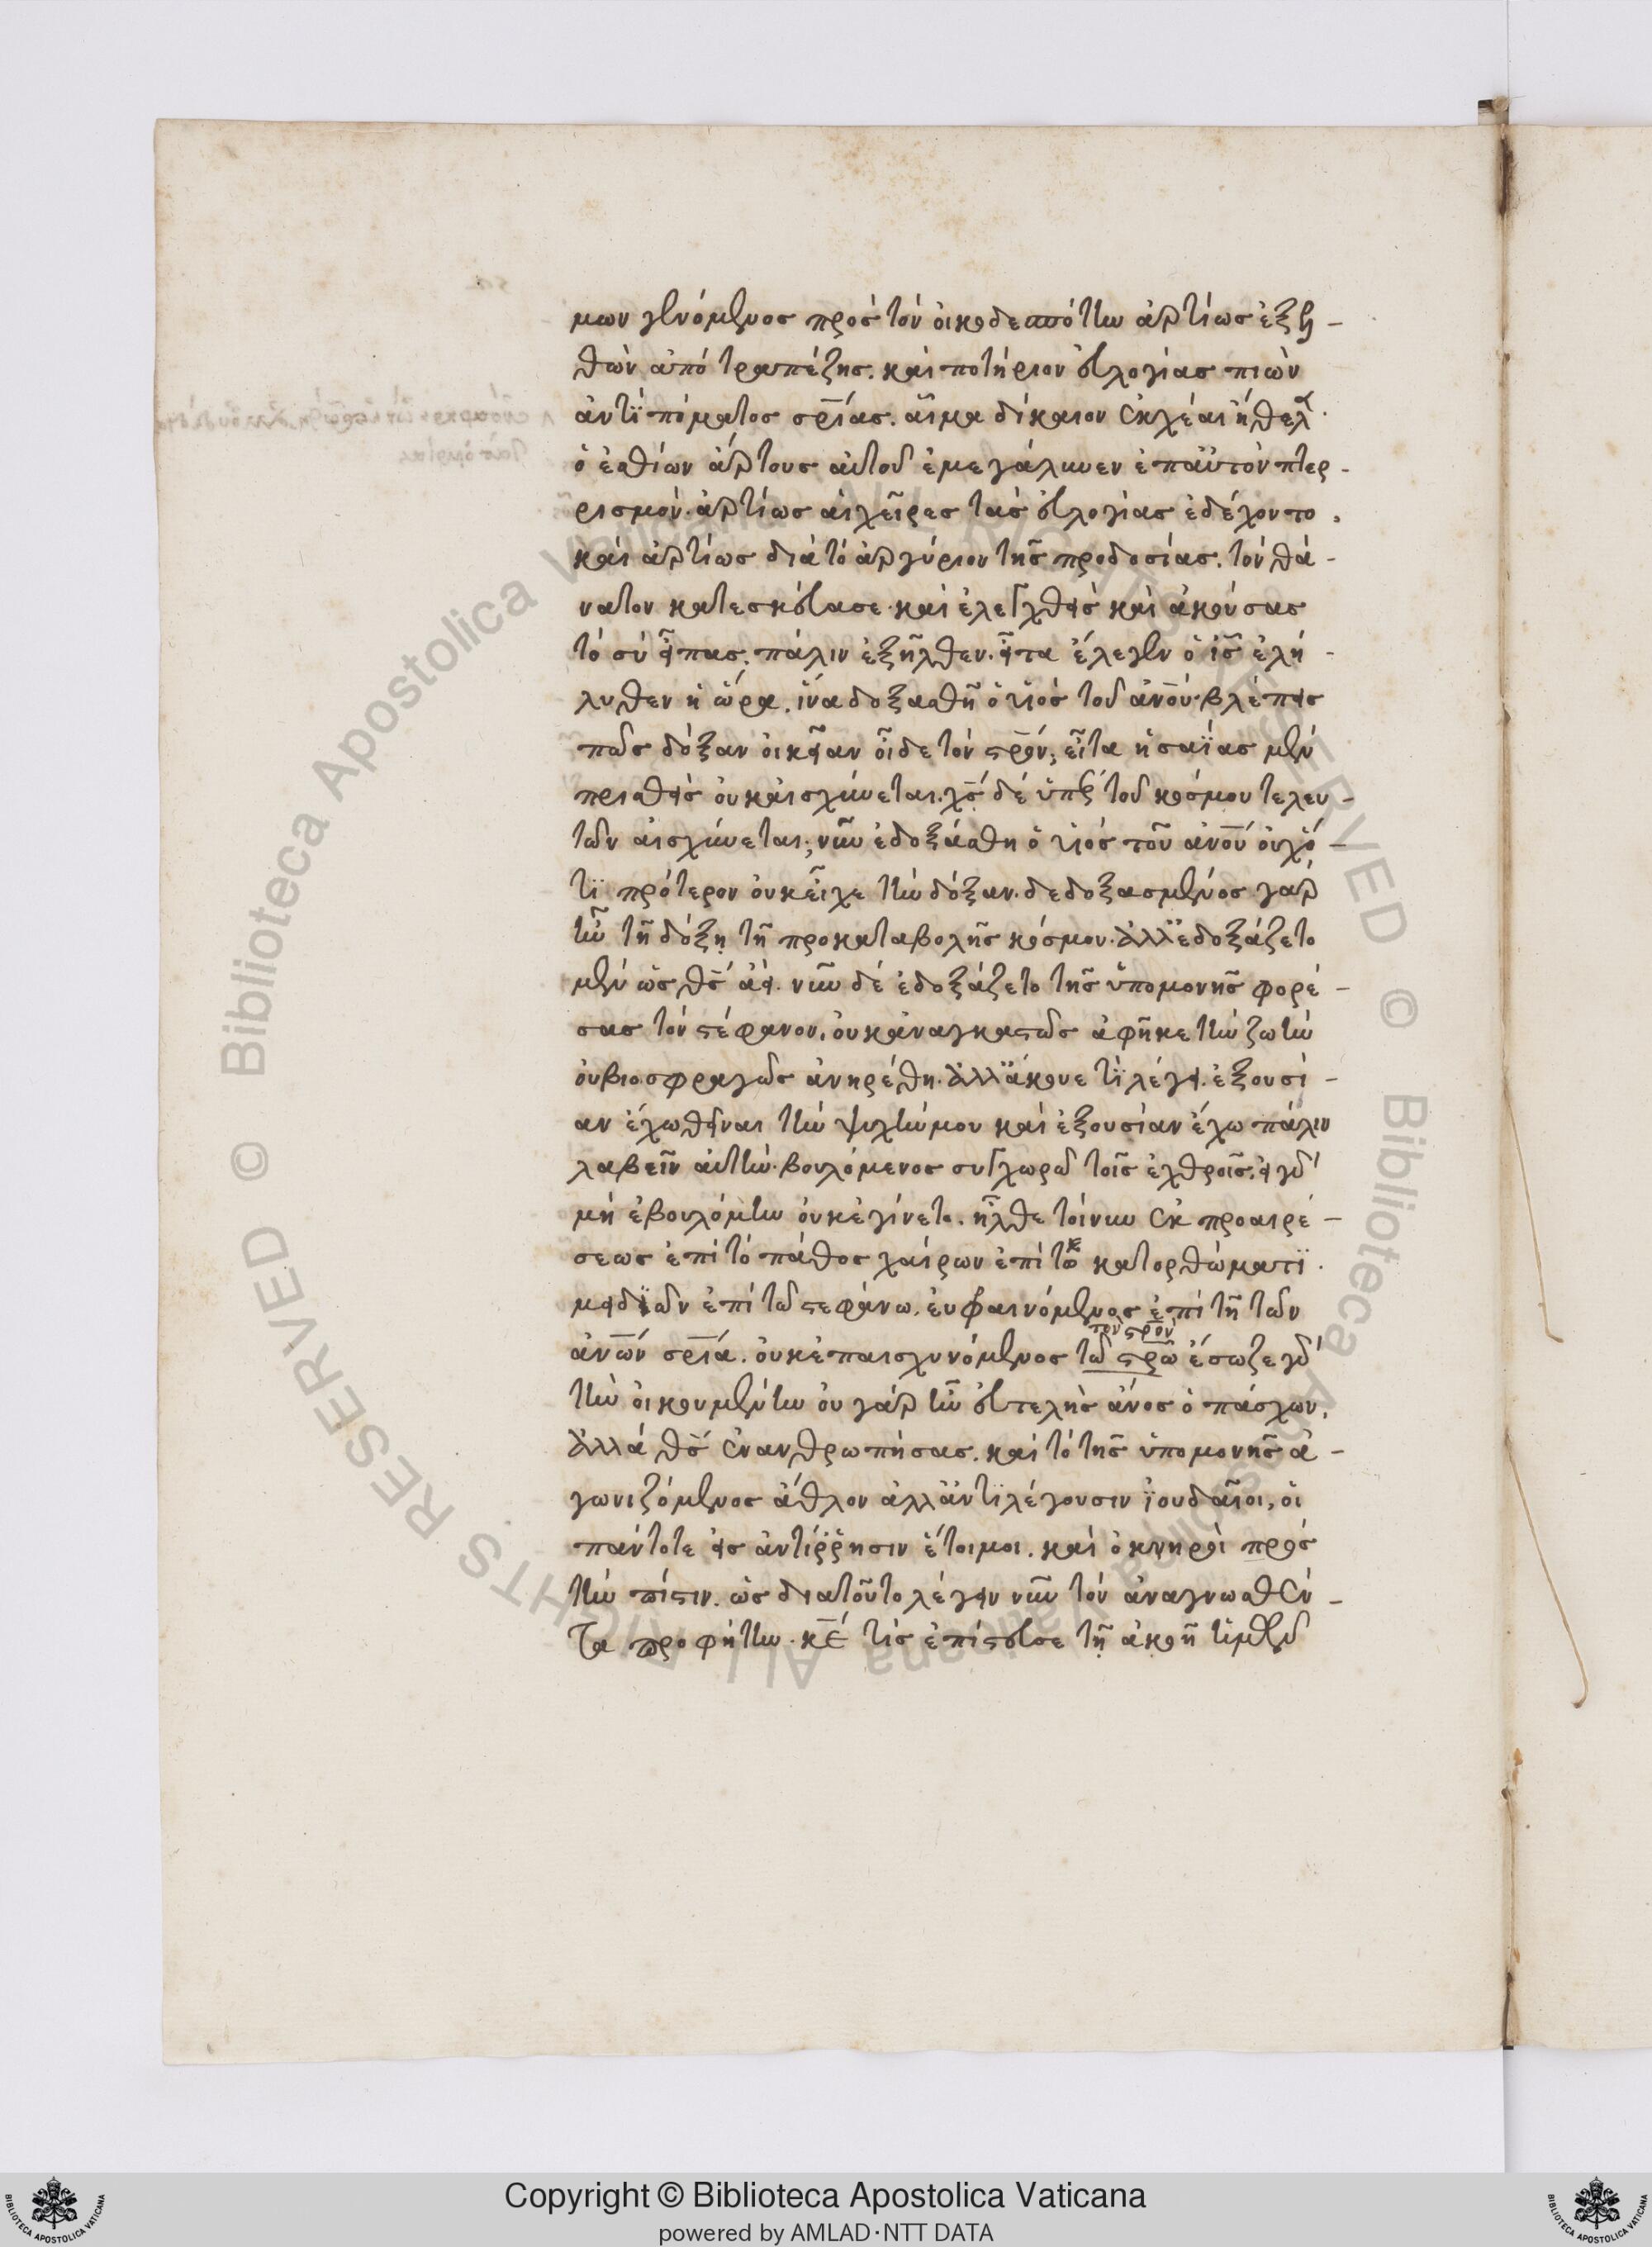 μων γενόμενος πρὸς τὸν οἰκοδεσπότην ἀρτίως ἐξελ-
θὼν ἀπὸ τραπέζης. καὶ ποτήριον εὐλογίας πιὼν
ἀντὶ πόματος σρίας. αἷμα δίκαιον ἐκχέαι ἤθελ
ὁ ἐσθίων ἄρτους αὐτοῦ ἐμεγάλυνεν ἐπ αὐτὸν πτερ-
ρισμόν. ἀρτίως αἱ χεῖρες τὰς εὐλογίας ἐδέχοντο,
καὶ ἀρτίως διὰ τὸ ἀργύριον τῆς προδοσίας. τὸν θά-
νατον κατεσκεύασε. καὶ ἐλεγχθεὶς καὶ ἀκούσας
τὸ σὺ εἶπας. πάλιν ἐξῆλθεν. εἶτα ἔλεγεν ὁ ις ἐλή-
λυθεν ἡ ὥρα. ἵνα δοξασθῇ ὁ υἱὸς τοῦ ανου. βλέπεις
πῶς δόξαν οἰκείαν οἶδε τὸν σρον; εἶτα ἡσαΐας μὲν
πρισθεὶς οὐκ αἰσχύνεται. χς δὲ ὑπὲρ τοῦ κόσμου τελευ-
τῶν αἰσχύνεται; νῦν ἐδοξάσθη ὁ υἱὸς τοῦ ανου οὐχ ὅ-
τι πρότερον οὐκ εἶχε τὴν δόξαν. δεδοξασμένος γὰρ
ἦν τῇ δόξῃ τῇ προκαταβολῆς κόσμου. ἀλλ ἐδοξάζετο
μὲν ὡς θς ἀεί. νῦν δὲ ἐδοξάζετο τῆς ὑπομονῆς φορέ-
σας τὸν στέφανον. οὐκ ἀναγκαστῶς ἀφῆκε τὴν ζωὴν
οὐ βιοσφραγῶς ἀνῃρέθη. ἀλλ ἄκουε τί λέγει. ἐξουσί-
αν ἔχω θεῖναι τὴν ψυχήν μου καὶ ἐξουσίαν ἔχω πάλιν
λαβεῖν αὐτήν. βουλόμενος συγχωρῶ τοῖς ἐχθροῖς. εἰ γὰρ
μὴ ἐβουλόμην οὐκ ἐγίνετο. ἦλθε τοίνυν ἐκ προαιρέ-
σεως ἐπὶ τὸ πάθος χαίρων ἐπὶ τῷ κατορθώματι.
μειδιῶν ἐπὶ τῶ στεφάνω. εὐφραινόμενος ἐπὶ τῇ τῶν
ανων σρία. οὐκ ἐπαισχυνόμενος τῶ σρω ἔσωζε γὰρ
τὸν σρον
τὴν οἰκουμένην οὐ γὰρ ἦν εὐτελὴς ανος ὁ πάσχων,
ἀλλὰ θς ἐνανθρωπήσας. καὶ τὸ τῆς ὑπομονῆς ἀ-
γωνιζόμενος ἆθλον ἀλλ ἀντιλέγουσιν ἰουδαῖοι, οἱ
πάντοτε εἰς ἀντίρρησιν ἕτοιμοι. καὶ ὀκνηροὶ πρὸς
τὴν πίστιν. ὡς διατοῦτο λέγειν νῦν τὸν ἀναγνωσθέν-
τα προφήτην. κε τίς ἐπίστευσε τῇ ἀκοῇ ἡμῶν